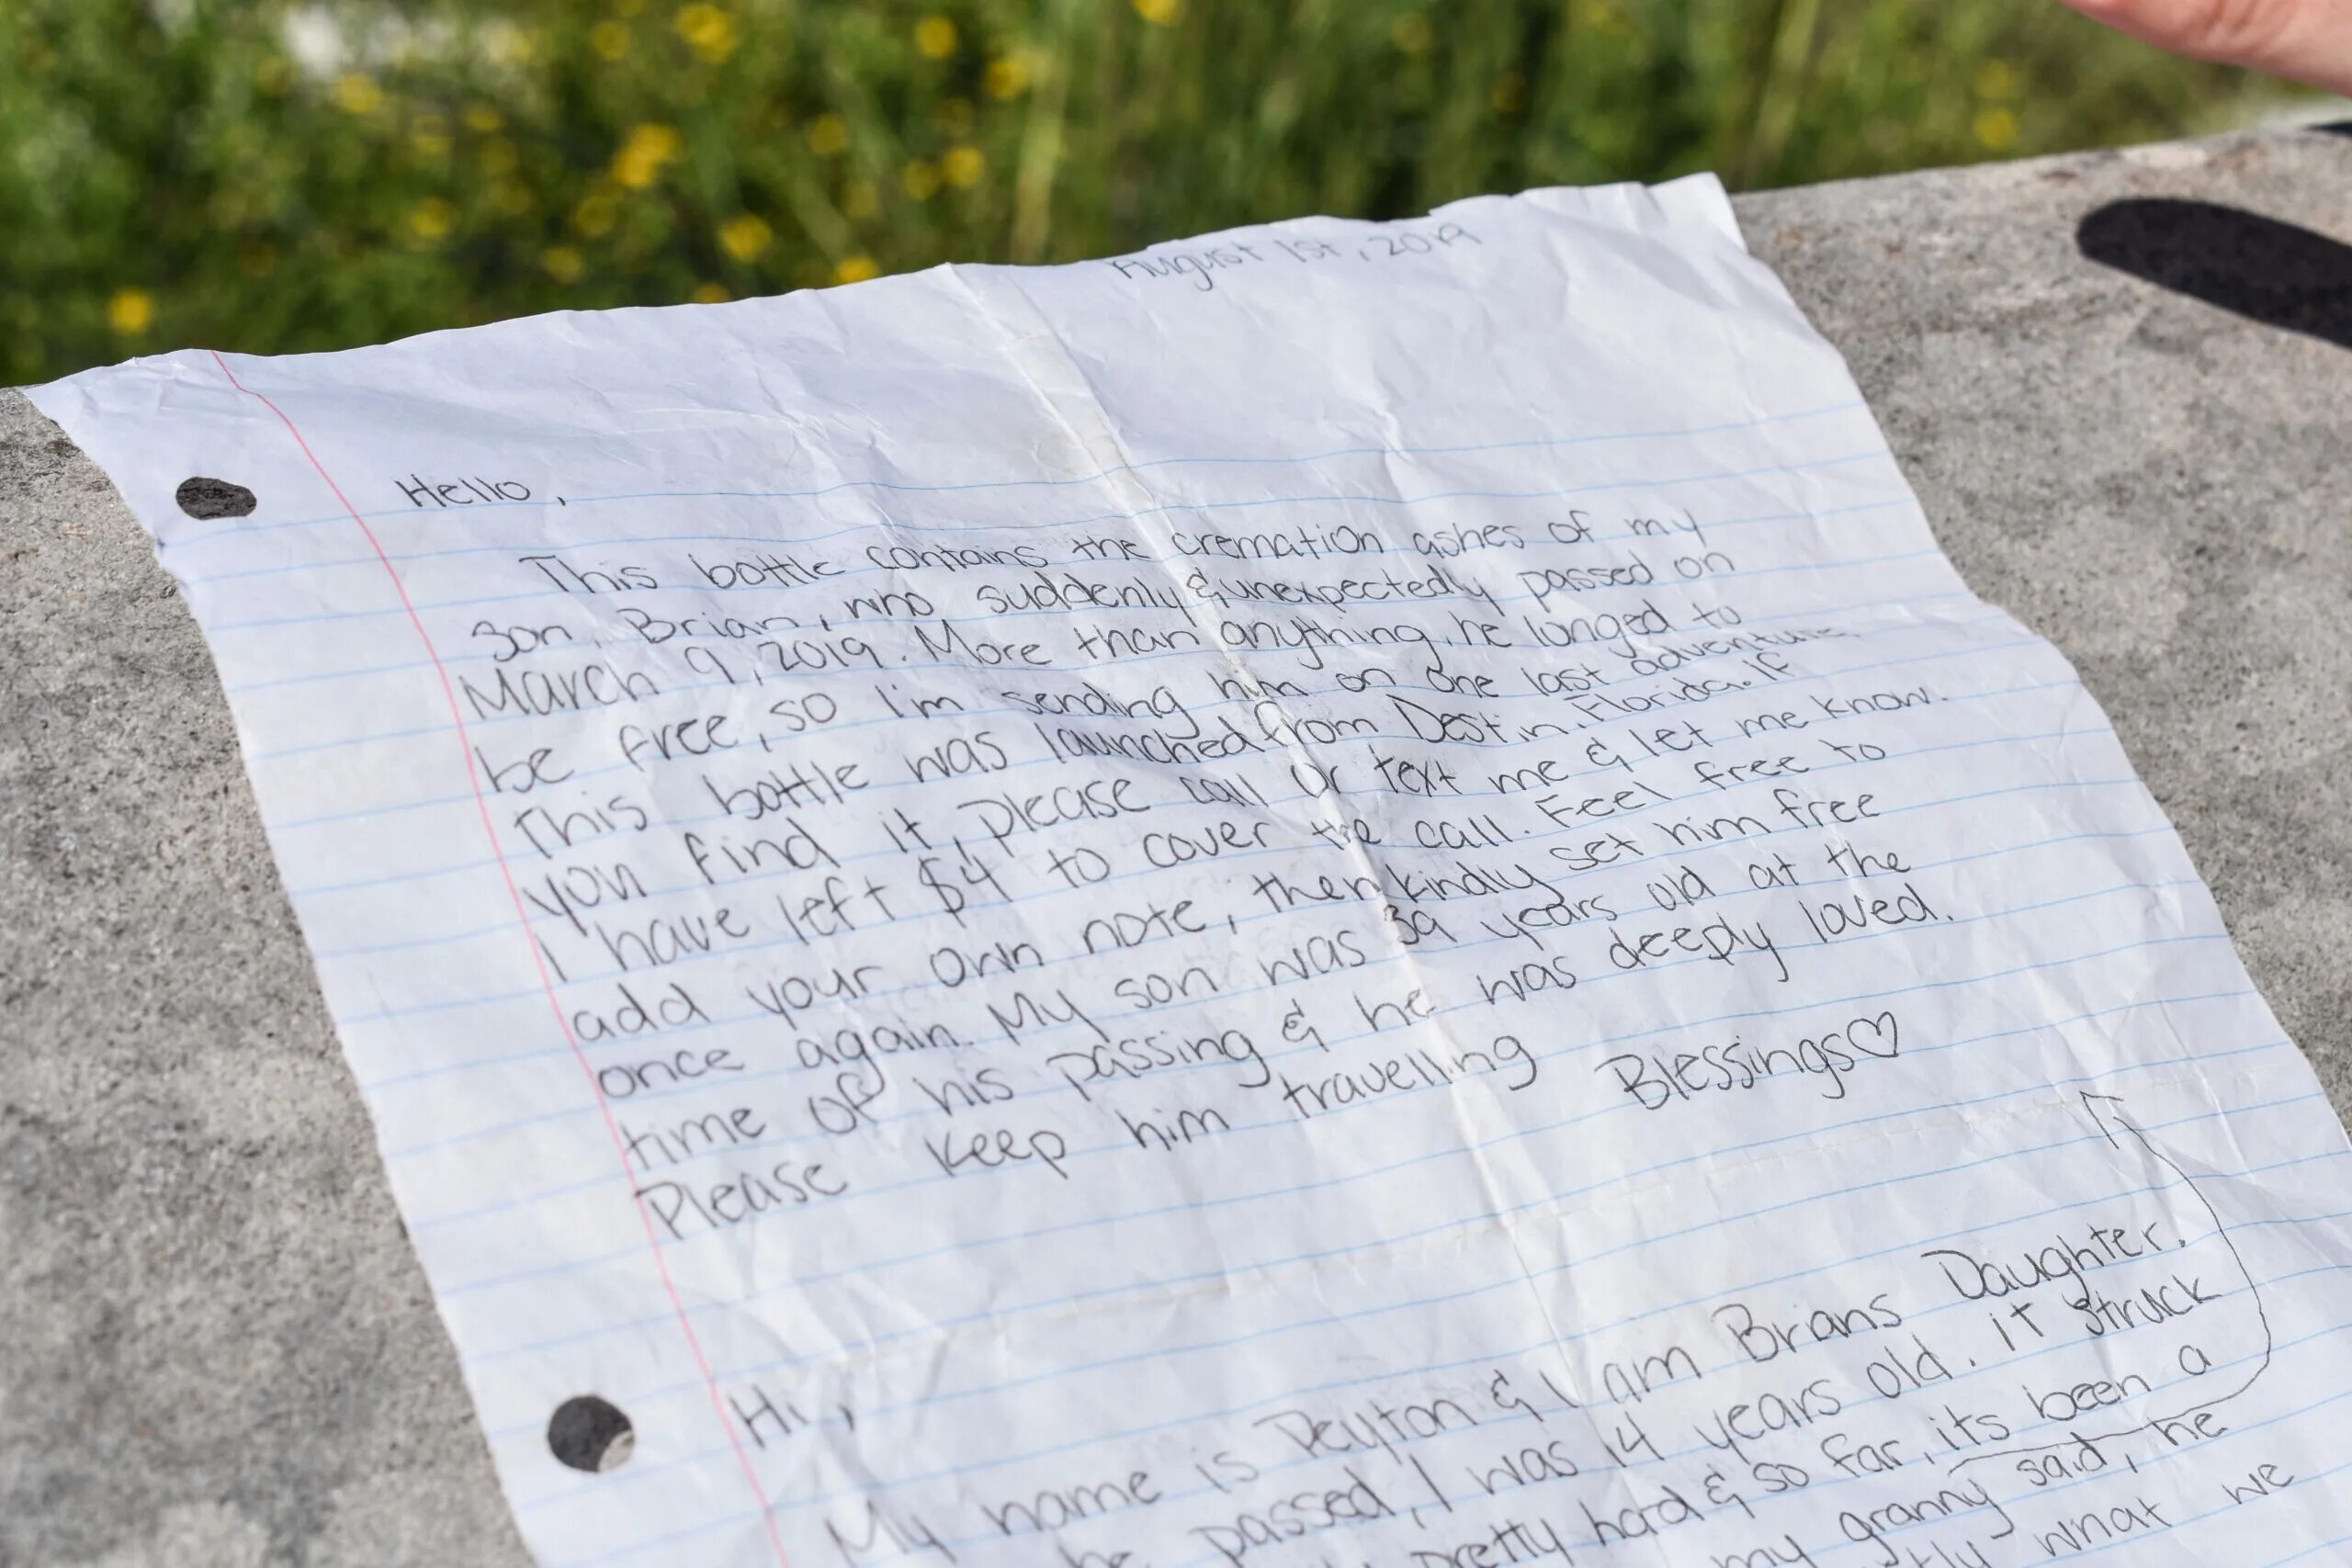 August 1st, 2019
Hello,
This bottle contains the cremation ashes of my
son, Brian, who suddenly & unexpectedly passed on
March 9, 2019. More than anything, he longed to
be free, so I'm sending him on one last adventure.
This bottle was launched from Destin, Florida. If
you find it, please call or text me & let me know.
I have left $4 to cover the call. Feel free to
add your own note, then kindly set him free
once again. My son was 39 years old at the
time of his passing & he was deeply loved.
Please keep him travelling Blessings♡
Hi,
My name is Peyton & I am Brians Daughter.
he passed, I was 14 years old. it struck
pretty hard & so far, its been a
my granny said, he
what we